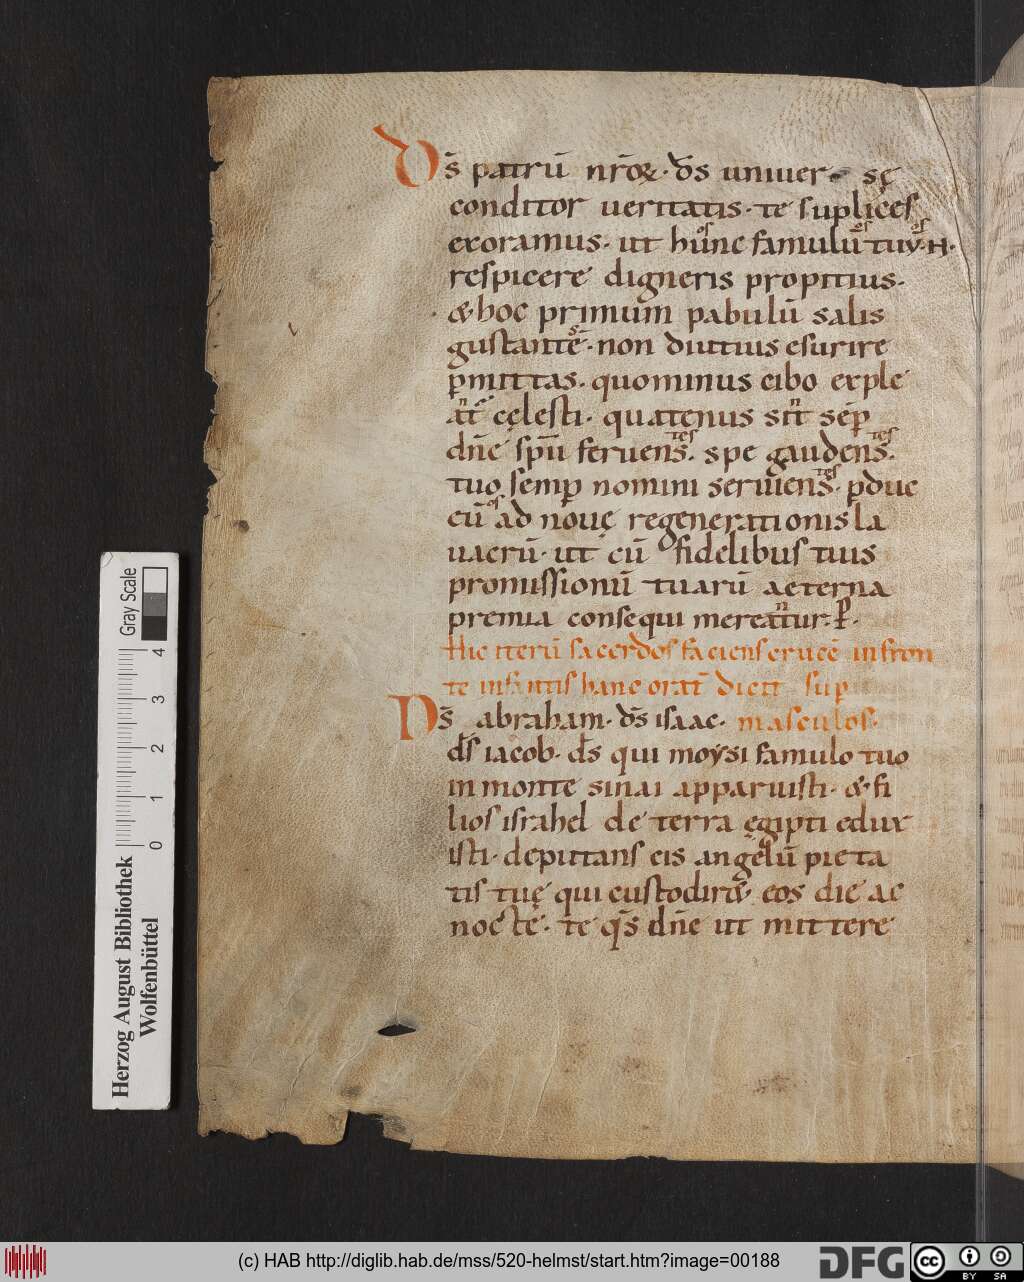 Ds̄ patrū nr̄oꝝ · ds̄ uniuersę
conditor ueritatis · te suplices
exoramus · ut hunc̄ os famulū os tuū os · N ·
respicere digneris propitius ·
& hoc primum pabulū salis
gustantē s · non diutius esurire
ꝑmittas · quominus cibo exple
at̄ n cęlesti · quatenus sit n sēp
dn̄e spū feruens tes · spe gaudens tes ·
tuo semꝑ nomini seruiens tes · ꝑduc
eū os ad nouę regenerationis la
uacrū · ut cū fidelibus tuis
promissionū tuarū aeterna
premia consequi mereatur n · P ·
Hic iterū sacerdos faciens crucē in fron
te infantis hanc orat̄ dicit sup
Ds̄ abraham · ds̄ isaac · masculos ·
ds̄ iacob · ds̄ qui moysi famulo tuo
in monte sinai apparuisti · & fi
lios israhel de terra egipti edux
isti · deputans eis angelū pieta
tis tuę qui custodir& eos die ac
nocte · te qs̄ dn̄e ut mittere
Gray Scale
0 1 2 3 4
Herzog August Bibliothek
Wolfenbüttel
(c) HAB http://diglib.hab.de/mss/520-helmst/start.htm?image=00188
DFG
cc BY SA